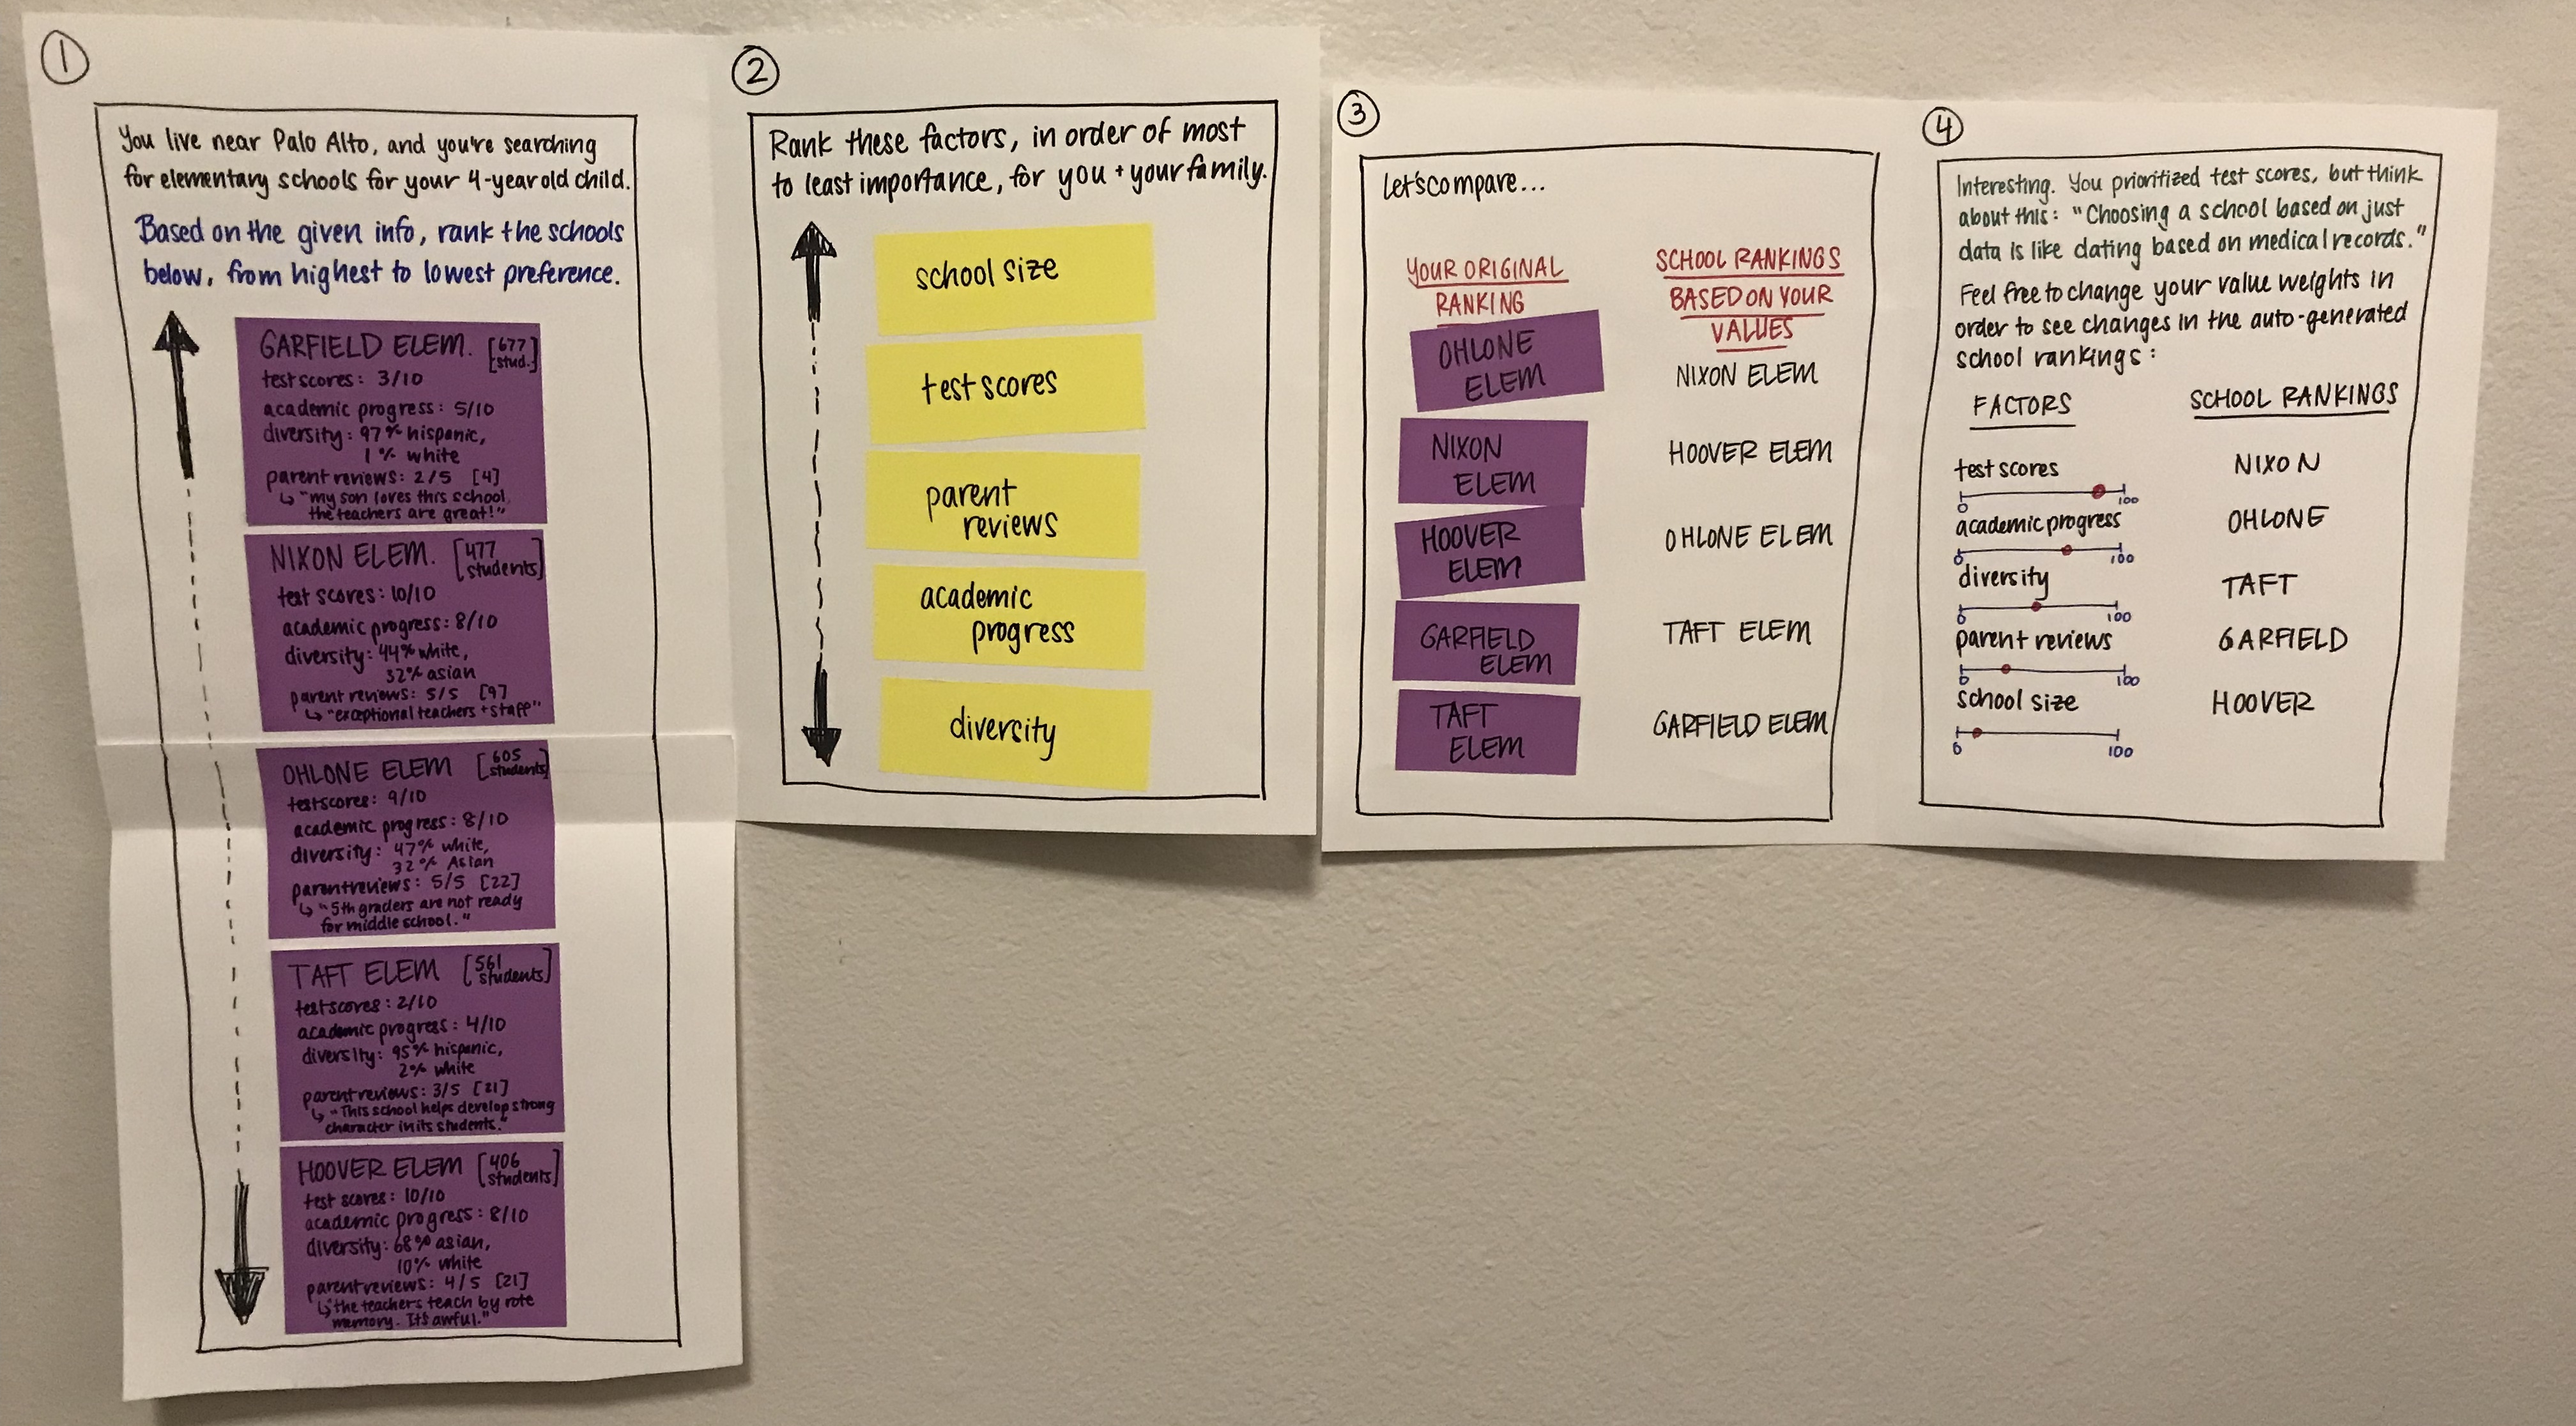 1
You live near Palo Alto, and you're searching
for elementary schools for your 4-year old child.
Based on the given info, rank the schools
below, from highest to lowest preference.
GARFIELD ELEM. [677
stud.]
test scores: 3/10
academic progress: 5/10
diversity: 97% hispanic,
1% white
parent reviews: 2/5 [4]
↳ "my son loves this school,
the teachers are great!"
NIXON ELEM. [477
students]
test scores: 10/10
academic progress: 8/10
diversity: 44% white,
32% asian
parent reviews: 5/5 [9]
↳ "exceptional teachers + staff"
OHLONE ELEM [605
students]
testscores: 9/10
academic progress: 8/10
diversity: 47% white,
32% Asian
parentreviews: 5/5 [22]
↳ "5th graders are not ready
for middle school."
TAFT ELEM [561
students]
testscores: 2/10
academic progress: 4/10
diversity: 95% hispanic,
2% white
parentreviews: 3/5 [21]
↳ "This school helps develop strong
character in its students."
HOOVER ELEM [406
students]
test scores: 10/10
academic progress: 8/10
diversity: 68% asian,
10% white
parentreviews: 4/5 [21]
↳ "the teachers teach by rote
memory. It's awful."
2
Rank these factors, in order of most
to least importance, for you + your family.
school size
test scores
parent
reviews
academic
progress
diversity
3
Let's compare...
YOUR ORIGINAL
RANKING
OHLONE
ELEM
NIXON
ELEM
HOOVER
ELEM
GARFIELD
ELEM
TAFT
ELEM
SCHOOL RANKINGS
BASED ON YOUR
VALUES
NIXON ELEM
HOOVER ELEM
OHLONE ELEM
TAFT ELEM
GARFIELD ELEM
4
Interesting. You prioritized test scores, but think
about this: "Choosing a school based on just
data is like dating based on medical records."
Feel free to change your value weights in
order to see changes in the auto-generated
school rankings:
FACTORS
test scores
0 100
academic progress
0 100
diversity
0 100
parent reviews
0 100
school size
0 100
SCHOOL RANKINGS
NIXON
OHLONE
TAFT
GARFIELD
HOOVER